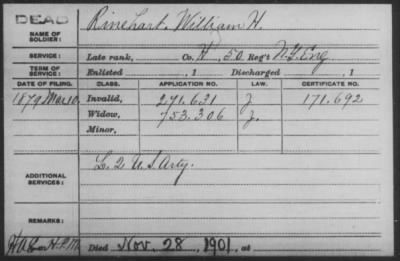 DEAD
NAME OF SOLDIER: Rinehart, William H.
SERVICE: Late rank, Co. H, 50 Reg't N.Y. Eng
TERM OF SERVICE: Enlisted , 1 Discharged , 1
DATE OF FILING. CLASS. APPLICATION NO. LAW. CERTIFICATE NO.
1879 Mar 10. Invalid, 271.631 J 171.692
Widow, 753.306 J.
Minor,
ADDITIONAL SERVICES: L. 2 U.S. Arty.
REMARKS:
Died Nov. 28, 1901, at